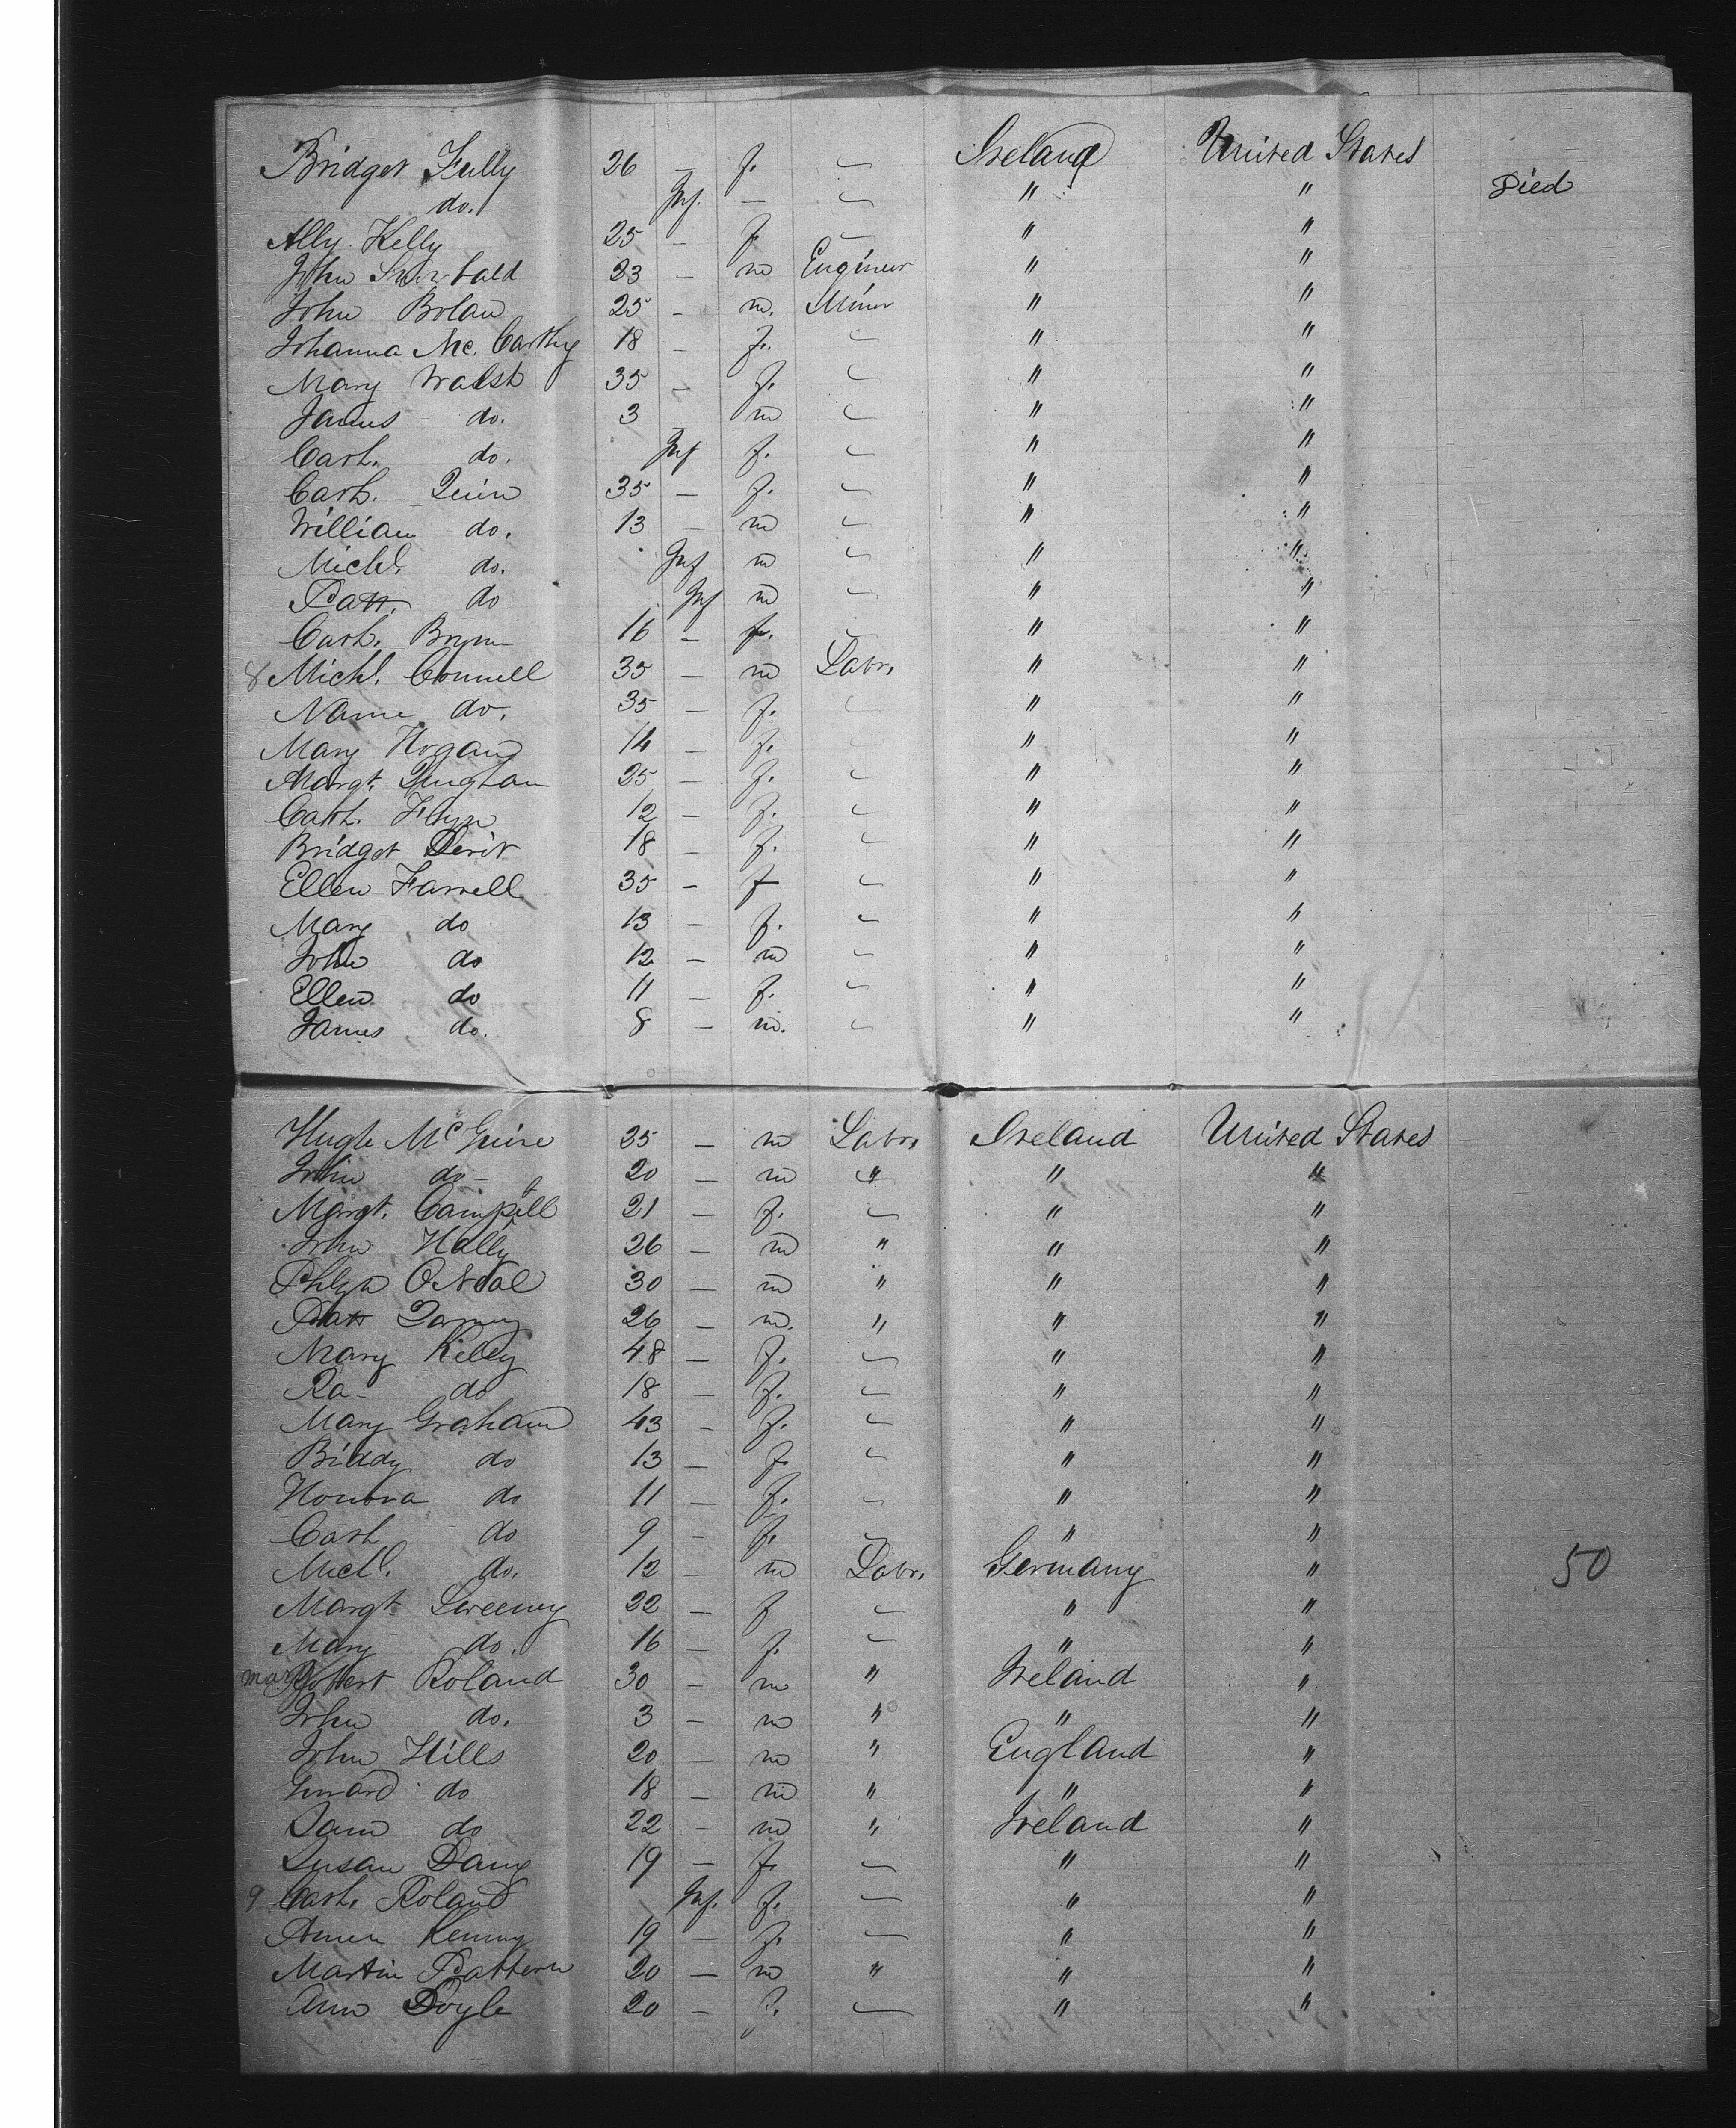 Bridget Fully 26 – f. – Ireland United States
do. Inf. – – " " Died
Ally Kelly 25 – f. – " "
John 23 – m Engineer " "
John Bolan 25 – m. Miner " "
Johanna Mc. Carthy 18 – f. – " "
Mary Walsh 35 – f. – " "
James do. 3 m – " "
Cath. do. Inf f. – " "
Cath. Quin 35 – f. – " "
William do. 13 – m – " "
Michl. do. Inf m – " "
Patt. do Inf m – " "
Cath. Brynn 16 – f. – " "
8 Michl. Connell 35 – m Labr. " "
Name do. 35 – f. – " "
Mary Hogan 14 – f. – " "
Margt. 25 – f. – " "
Cath. Flyn 12 – f. – " "
Bridget 18 – f. – " "
Ellen Farrell 35 – f – " "
Mary do 13 – f. – " "
John do 12 – m – " "
Ellen do 11 – f. – " "
James do. 8 – m. – " "
Hugh McGuire 25 – m Labr. Ireland United States
John do – 20 – m " " "
Margt. Campbell 21 – f. – " "
John Hally 26 – m " " "
O Neal 30 – m " " "
Patt 26 – m. " " "
Mary Kelley 48 – f. – " "
Ra- do 18 – f. – " "
Mary Graham 43 – f. – " "
Biddy do 13 – f – " "
Honora do 11 – f. – " "
Cath do 9 – f. – " "
Michl. do. 12 – m Labr. Germany " 50
Margt. Sweeney 22 – f – " "
Mary do. 16 – f. – " "
Robert Roland 30 – m " Ireland "
John do. 3 – m " " "
John Hills 20 – m " England "
do 18 – m " " "
Sam do 22 – m " Ireland "
Susan 19 – f. – " "
9 Cath. Roland Inf. f. – " "
Kenny 19 – f. – " "
Martin Battern 20 – m " " "
Ann Doyle 20 – f. – " "